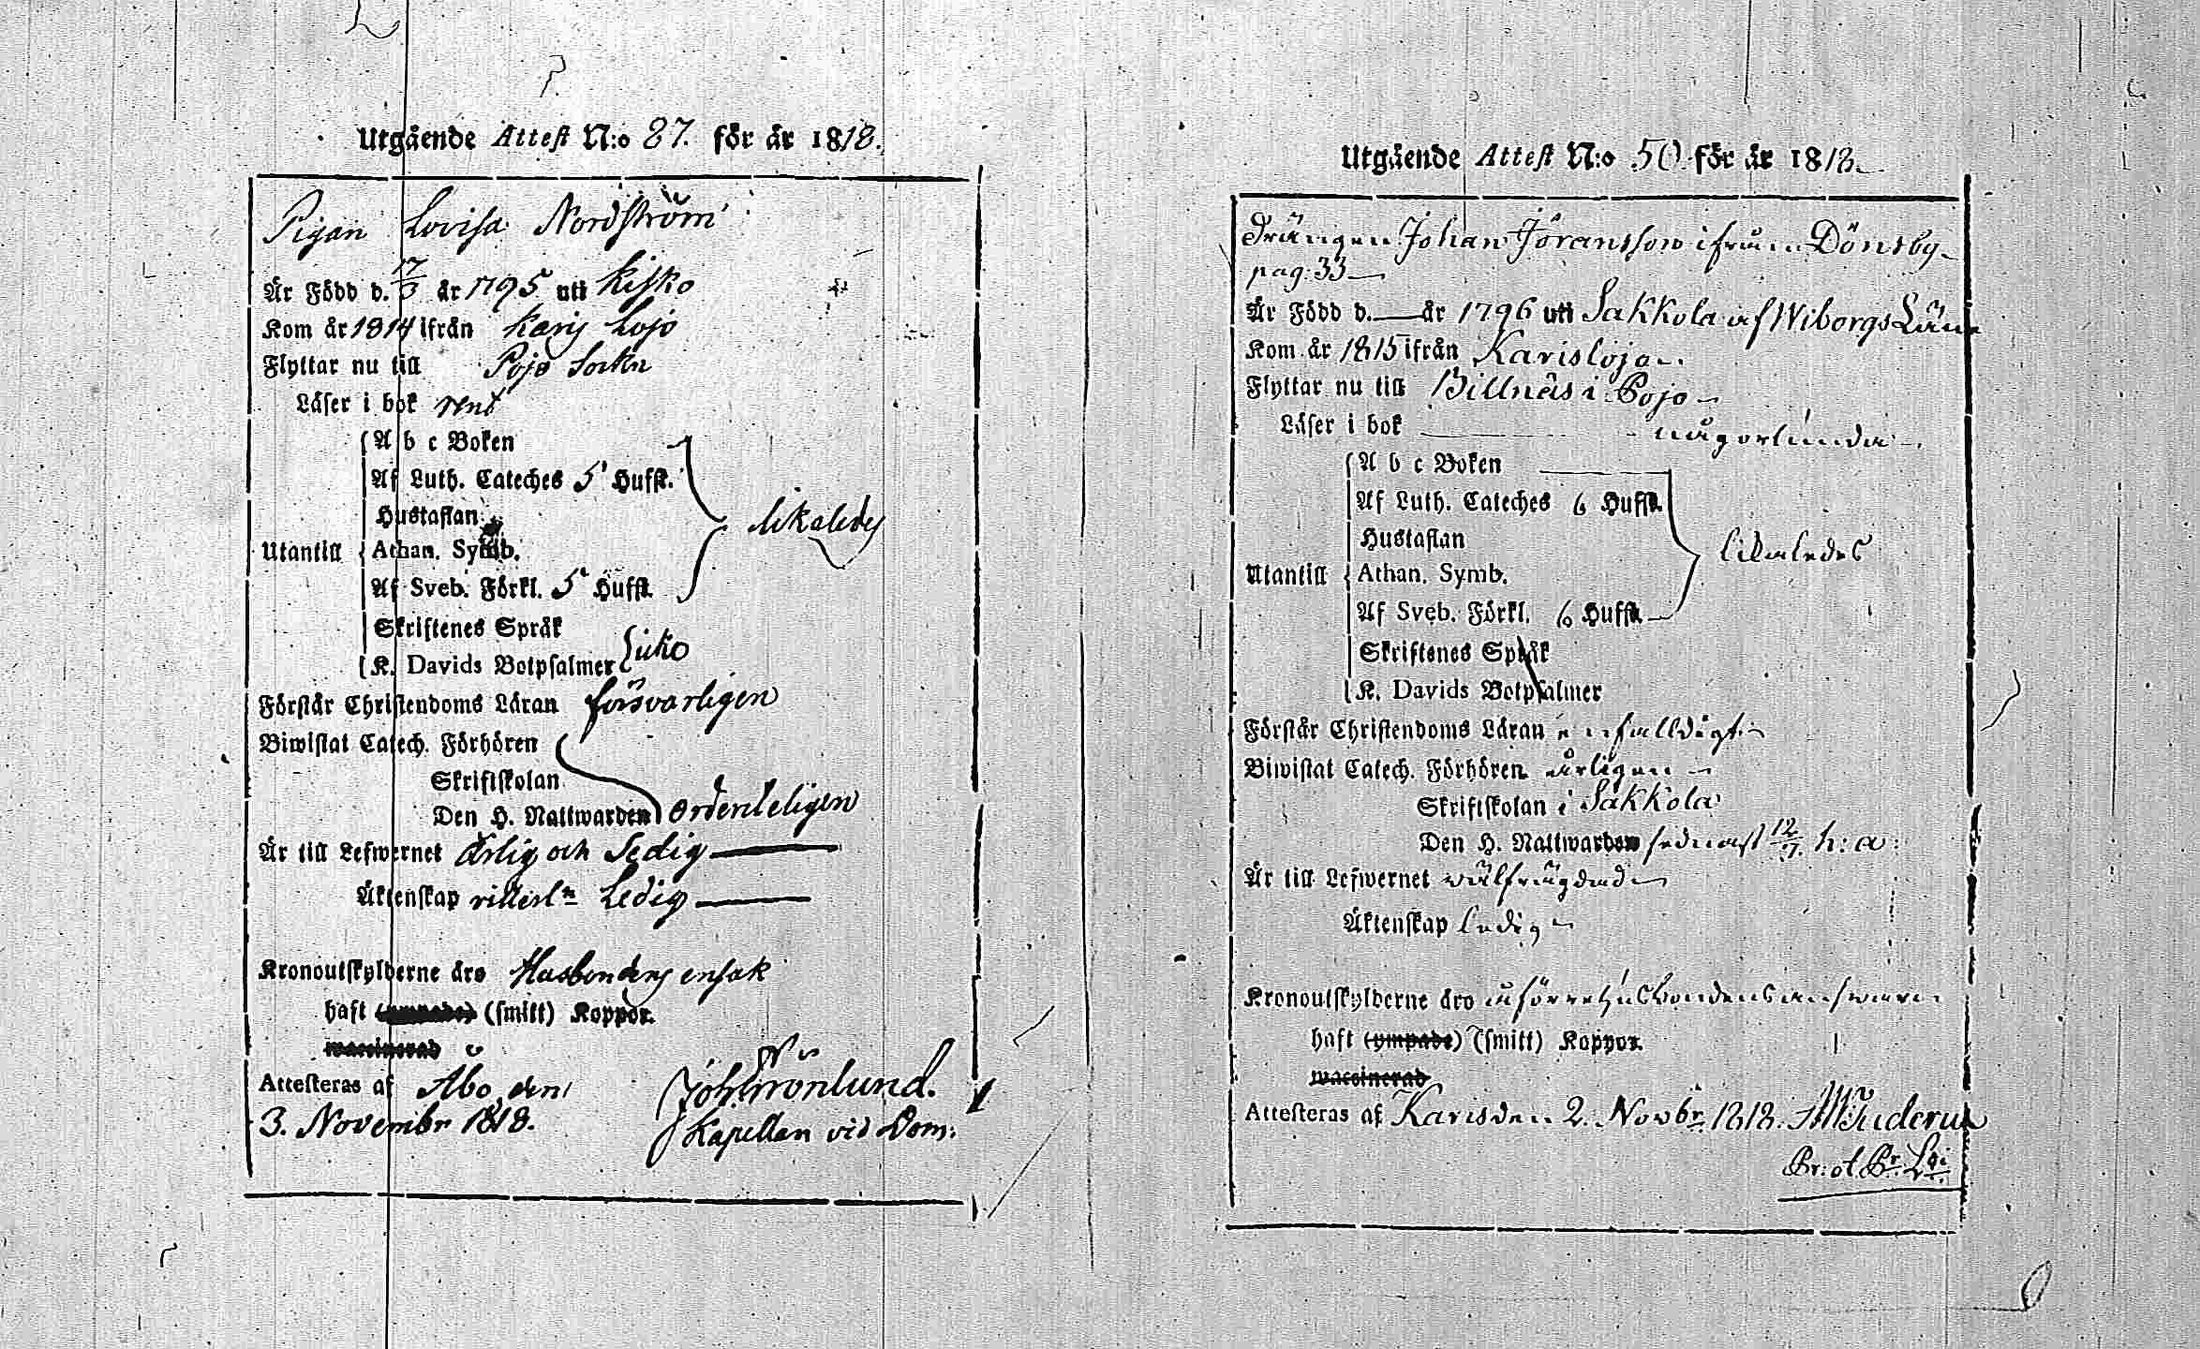 Utgående Attest N:o 87. för år 1818.
Pigan Lovisa Nordström
Är Född d. 17/3 år 1795 uti Kisko
Kom år 1814 ifrån Karis Lojo
Flyttar nu till Pojo Sockn
Läser i bok rent
A b c Boken
Af Luth. Cateches 5 Hufst.
Hustaflan
likaledes
Utantill Athan. Symb.
Af Sveb. Förkl. 5 Hufst.
Skriftenes Språk
K. Davids Botpsalmer
Förstår Christendoms Läran försvarligen
Biwistat Catech. Förhören
Skriftskolan
Den H. Nattwarden ordenteligen
Är till Lefwernet ärlig och Sedig
Äktenskap Ledig
Kronoutskylderne äro Husbondens ensak
haft (ympade) (smitt) Koppor.
waccinerad
Attesteras af Åbo, den
3. Novembr 1818.
Joh. Grönlund.
Kapellan vid Dom:
Utgående Attest N:o 50 för år 1818.
Drängen Johan Jöransson ifrån Dönsby
pag: 33
Är Född d. — år 1796 uti Sakkola af Wiborgs Län
Kom år 1815 ifrån Karislojo
Flyttar nu till Billnäs i Pojo
Läser i bok någorlunda
A b c Boken
Af Luth. Cateches 6 Hufst.
Hustaflan
likaledes
Utantill Athan. Symb.
Af Sveb. Förkl. 6 Hufst.
Skriftenes Språk
K. Davids Botpsalmer
Förstår Christendoms Läran enfalldigt
Biwistat Catech. Förhören årligen
Skriftskolan i Sakkola
Den H. Nattwarden sednast 12/7 h: a:
Är till Lefwernet wälfrägdad
Äktenskap ledig
Kronoutskylderne äro husbondens answar
haft (ympade) (smitt) Koppor.
waccinerad
Attesteras af Karis den 2. Novbr. 1818.